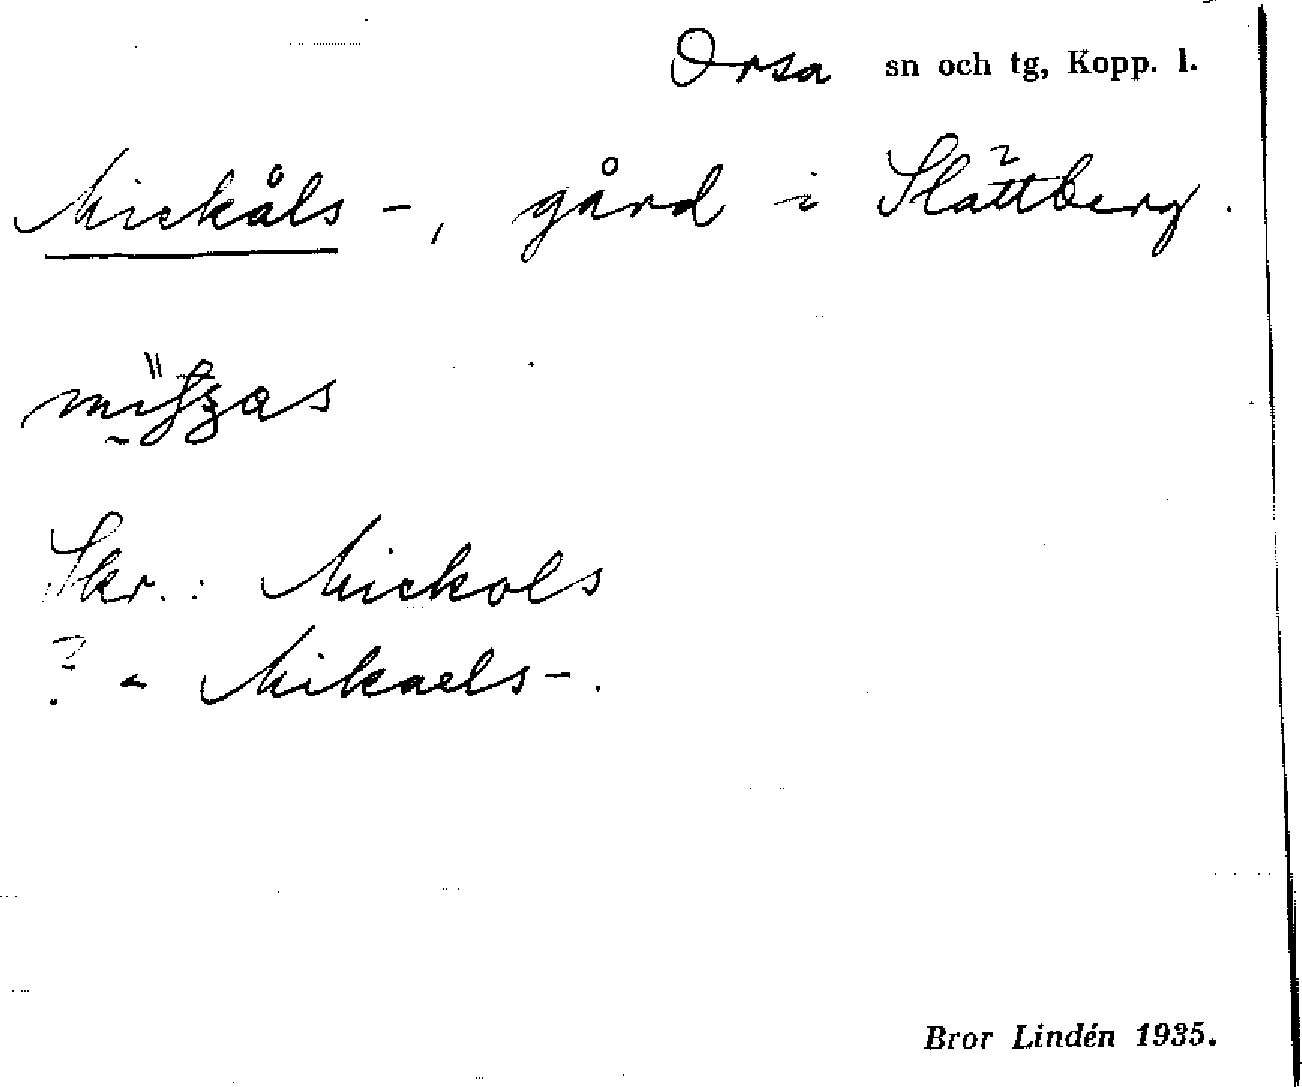 Orsa sn och tg, Kopp. l.
Mickåls -, gård i Slättberg.
Skr. : Mickols
? - Mikaels - .
Bror Lindén 1935.